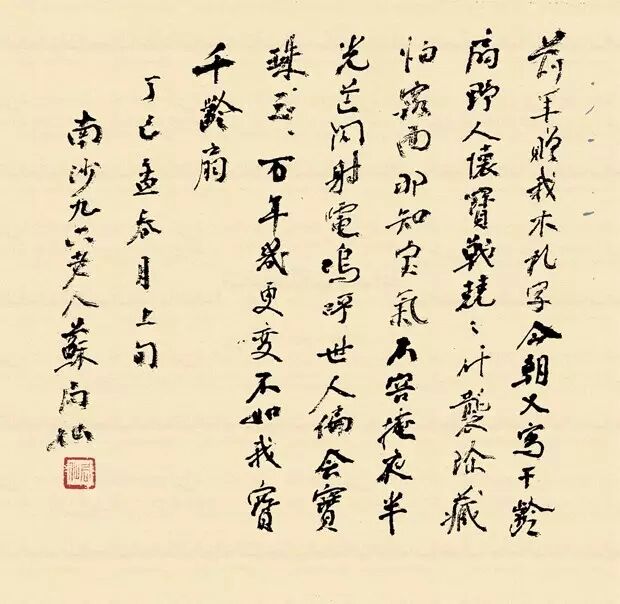 年贈我木字今朝又寫千齡
扇野人懷寶戰兢〻什襲珍藏
怕露面那知宝氣不容掩夜半
光芒閃射電嗚呼世人偏会寶
珠玉〻万年幾更變不如我寶
千齡扇
丁巳孟春月上旬
南沙九六老人蘇局仙